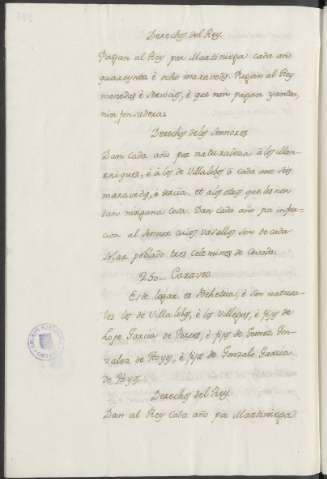 Derechos del Rey.
Pagan al Rey por Martiniega cada año
quarenta è ocho maravedis. Pagan al Rey
monedas è servicios, è que non pagan yantar,
nin fonsadera.
Derechos de los Sennores
Dan cada año por naturaleza à los Man-
riques, è à los de Villalobos à cada uno seis
maravedis, è à los otros que les non
dan ninguna cosa. Dan cada año por infur-
cion al Sennor cuios vasallos son de cada
solar poblado tres celemines de cevada.
250. Caraveo
Este logar es Behetria, è son natura-
les los de Villalobos, è los Villegas, è fijos de
Lope Garcia de Porres, è fijos de Gomez Gon-
zalez de Hoyos, è fijos de Gonzalo Garcia
de Hoyos.
Derechos del Rey.
Dan al Rey cada año por Martiniega